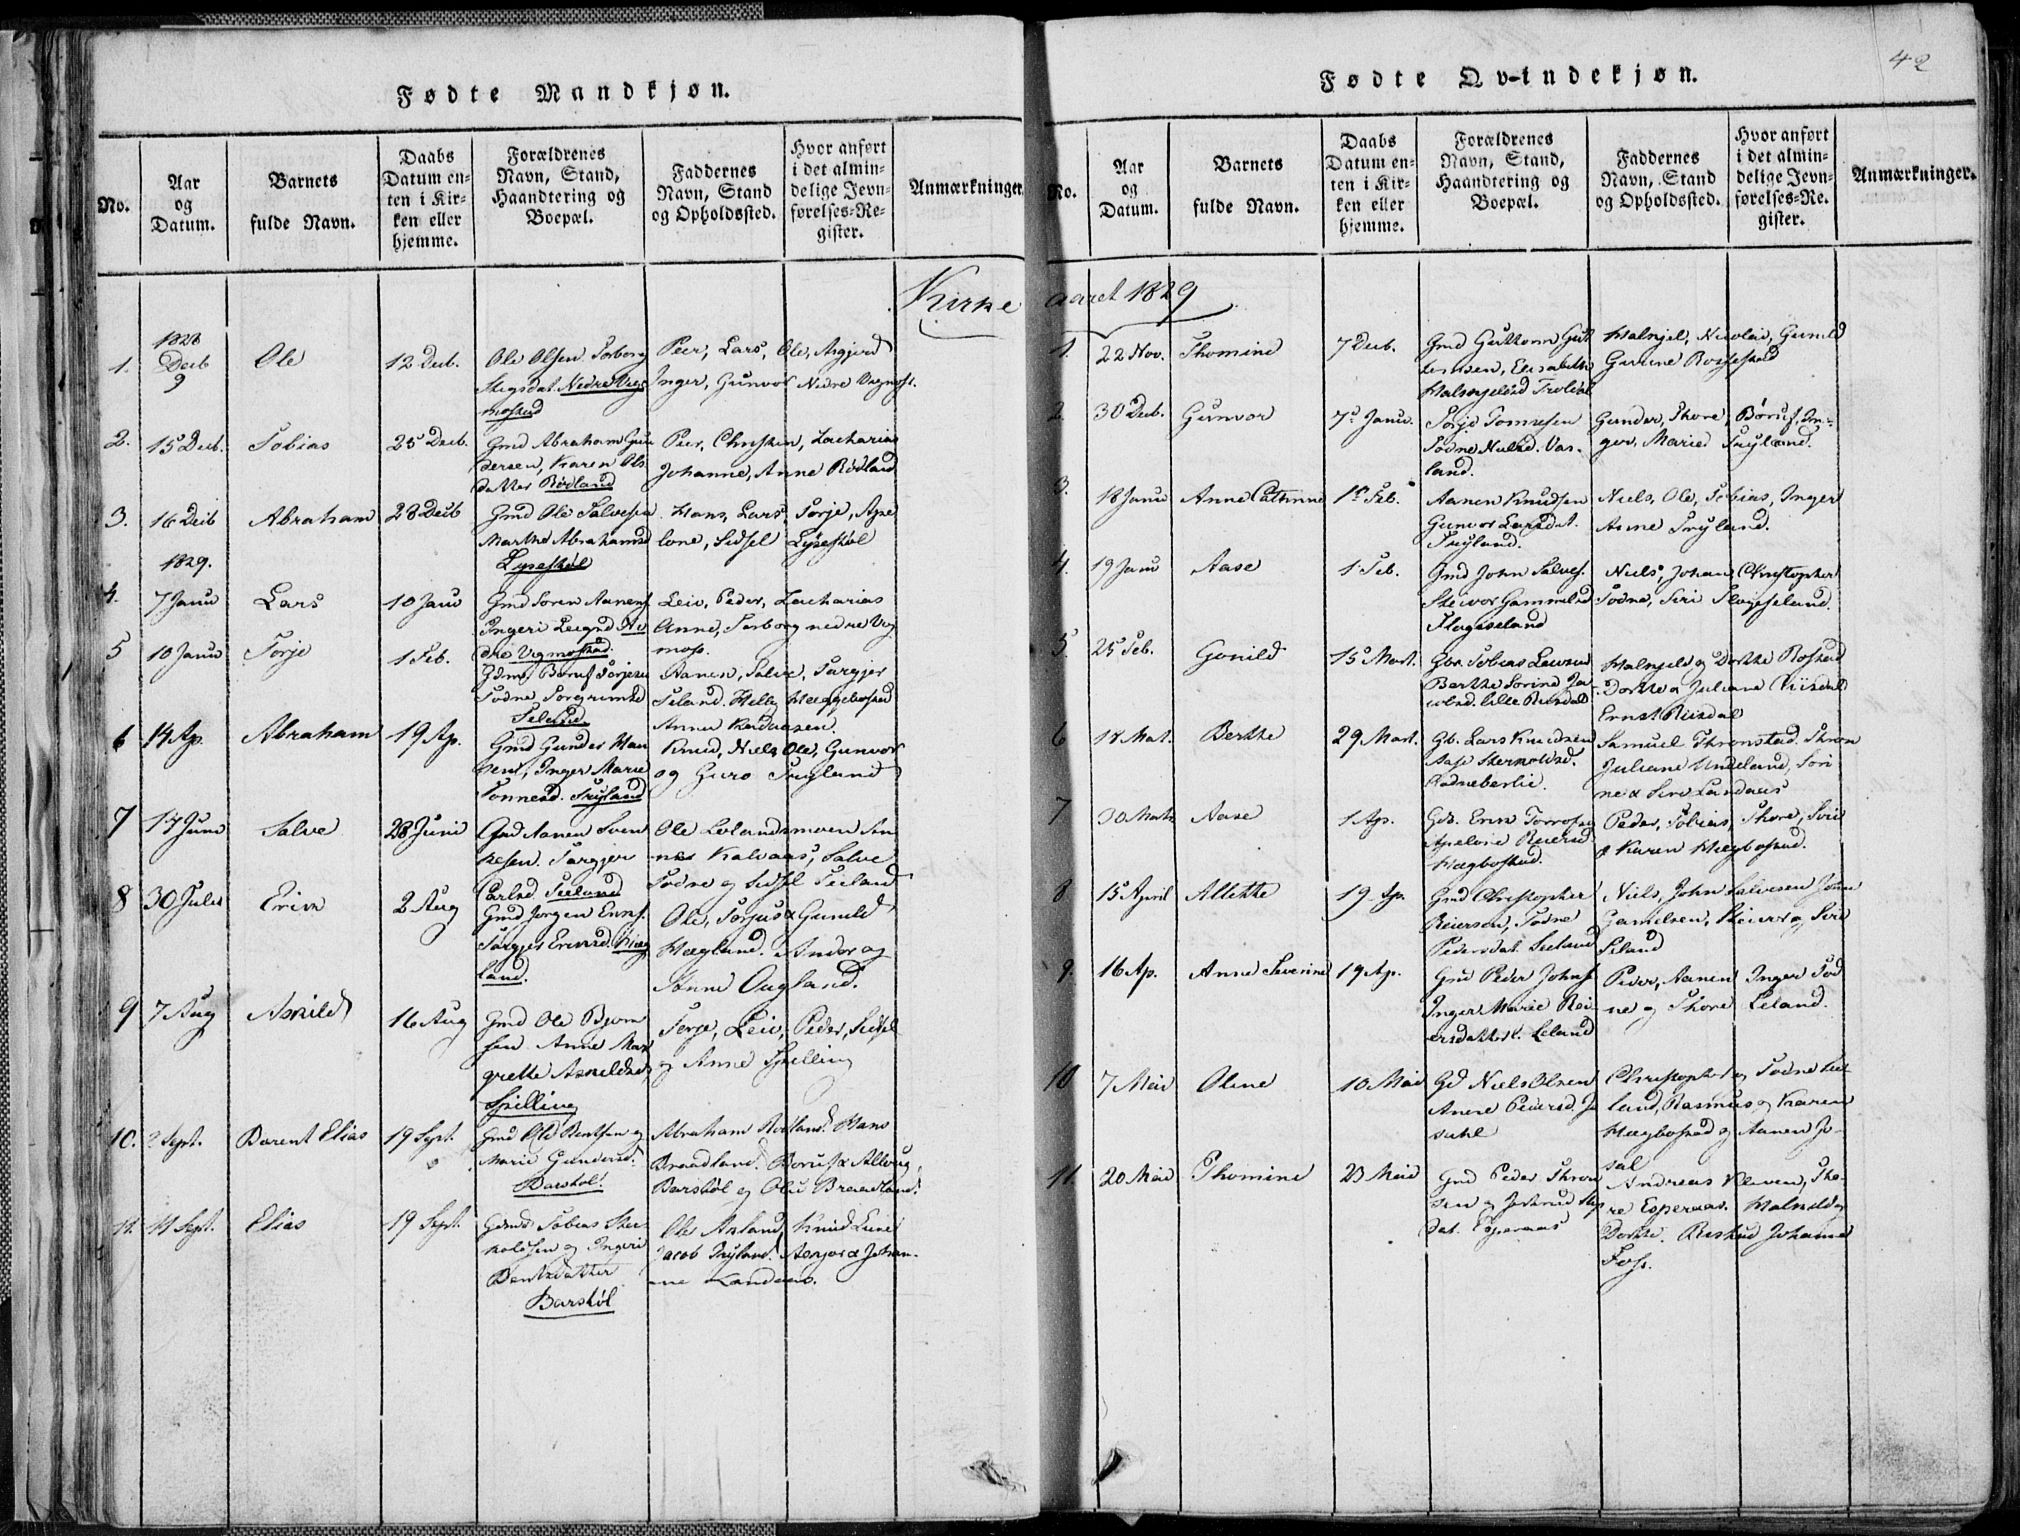 42
Fødte Mandkjøn.
No.
Aar
og
Datum.
Barnets
fulde Navn.
Daabs
Datum en-
ten i Kir-
ken eller
hjemme.
Forældrenes
Navn, Stand,
Haandtering og
Boepæl.
Faddernes
Navn, Stand
og Opholdssted.
Hvor anført
i det almin-
delige Jevn-
førelses-Re-
gister.
Anmærkninger
Kirke
1.
1828
Decb
9
Ole
12 Decb.
Ole Olsen Torborg
Stigsdat. Nedre Veg
mostad
Peer, Lars, Ole, Asgjerd
Inger, Gunvor Nedre Vegmost.
2.
15 Decb.
Tobias
25 Decb.
Gmd Abraham Gun
dersen, Karen Ols
datter Rødland
Peer, Christen, Zacharias
Johanne, Anne Rødland
3.
16 Decb
Abraham
28 Decb
Gmd Ole Salvesen
Marthe Abrahamsd
Lyseskøl
Hans, Lars, Torje, Axe
lone, Sidsel Lyseskøl
1829.
4.
7 Janu
Lars
10 Janu
Gmd Soren Aanens
Ingeri Leegsd Ne
dre Vegmostad
Leiv, Peder, Zacharias
Anne, Torborg nedre Veg
mos.
5
10 Janu
Torje
1 Feb.
Gdmd Boruf Torjesen
Todne Torgrimsd
Seland
Aanen, Salve, Targjer
Seland. Helly Hæggebostad
Anne
6
14 Ap.
Abraham
19 Ap.
Gmd Gunder Han
sens, Inger Marie
Tonnesd. Tryland
Knud, Niels Ole, Gunvor
og Guro Tryland
7
14 Juni
Salve
28 Juni
Gmd Aanen Sven
kesen. Targjer
Carlsd. Seeland
Ole Lolandsmoen An
nes Kalvaas, Salve
Todne og Sidsel Seeland
8
30 Juli
Erik
2 Aug
Gmd Jørgen Eriks.
Targjer Eriksd. Hæg
land.
Ole, Torjus & Gunild
Hægland. Andor og
Anne Ougland.
9
7 Aug
Asnild
16 Aug
Gmd Ole Bjorn
sen. Anne Mar
grethe Asnildsd
Spilling
Torje, Leiv, Peder, Sidsel
og Anne Spilling
10.
Sept.
Barent Elias
19 Sept.
Gmd Ole Bentsen og
Marie Gundersd.
Barskøl.
Abraham Rødland. Hans
Braadland. Boruf & Allvug
Barskøl og Olu Braadland.
11.
14 Sept.
Elias
19 Sept.
Gdmd Tobias Ster
koldsen og Ingeri
Bentsdatter
Barskøl
Ole Asland, Knud Leire
Jacob Tryland. Asgjer & Johan-
ne Landaas.
Fødte Qvindekjøn.
No.
Aar
og
Datum.
Barnets
fulde Navn.
Daabs
Datum en-
ten i Kir-
ken eller
hjemme.
Forældrenes
Navn, Stand,
Haandtering og
Boepæl.
Faddernes
Navn, Stand
og Opholdssted.
Hvor anført
i det almin-
delige Jevn-
førelses-Re-
gister.
Anmærkninger.
aaret 1829
1.
22 Nov.
Thomine
7 Decb.
Gmd Guttorm Gut
tormsen, Elisabeth
Halvorsd Troldal
Halvjel, Nicolai, Gunild
Gurine Rossestad
2.
30 Decb.
Gunvor
7 Janu.
Torje Tonnesen
Todne Nielsd. Vas-
land.
Gunder, Thore, Børuf, In-
ger, Marie Tryland.
3.
18 Janu
Anne Cathrine
1 Feb.
Aanen Knudsen
Gunvor Larsdat.
Tryland.
Niels, Ole, Tobias, Inger
Anne Tryland.
4.
19 Janu
Aase
1 Feb.
Gmd John Salves.
Steivor Gammelsd
Flageseland
Niels, Johan Christopher
Todne, Siri Flageseland.
5.
25 Feb.
Gonild
15 Mart.
Gbr. Tobias Lewsen
Berthe Sorine Ja
cobsd. lille Riisdal
Halvjeld og Dorthe Rosstad
Dorthe & Juliane Riisdal
Ernst Riisdal
6
18 Mat.
Berthe
29 Mart.
Gb. Lars Knudsen
Aase Sterkoldsd.
Rodneberlie.
Samuel Thronstad. Thron
Juliane Undeland, Sori
ne & Siri Landaas
7
30 Marts
Aase
1 Ap.
Gdb. Erik Torrossen
Apelone Reiersd
Hægbostad.
Peder, Tobias, Thore, Siri
& Karen Hægbostad.
8
15 April
Allette
19 Ap.
Gmd Christopher
Reiersen, Todne
Pedersdat. Seeland
Niels, John Salvesen John
Gamelsen, Steivor og Siri
Seland
9.
16 Ap.
Anne Severine
19 Ap.
Gmd Peder Johns.
Inger Marie Rei
ersdatter. Leland
Peder, Aanen Inger Tod
ne og Thore Leland.
10
7 Mai
Oline
10 Mai
Gd Niels Olsen
Anne Pedersd. Jo
sdahl
Christopher og Todne See
land, Rasmus og Karen
Hægbostad og Aanen Jo-
sdal
11
20 Mai
Thomine
23 Mai
Gmd Peder Thron
sen og Jertrud
Dat. Esperaas
Andreas Kleven, Tho-
re Esperaas. Halvild
Dorthe. Riisstad Johanne
Foss.